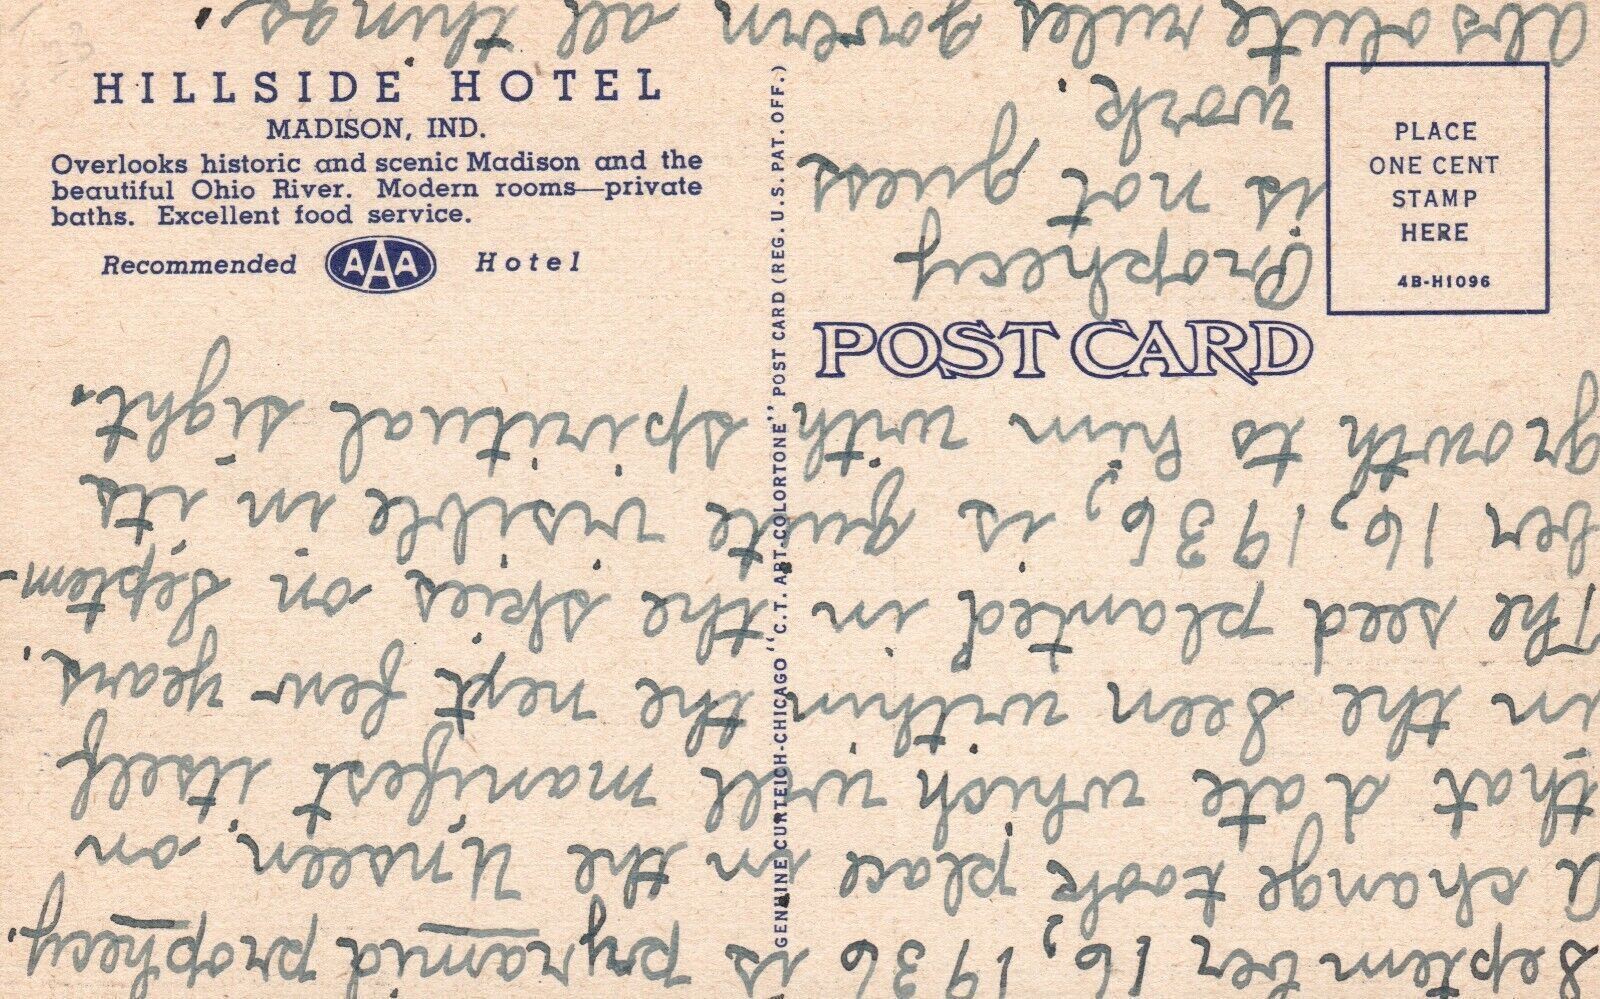 HILLSIDE HOTEL
MADISON, IND.
Overlooks historic and scenic Madison and the
beautiful Ohio River. Modern rooms—private
baths. Excellent food service.
Recommended AAA Hotel
GENUINE CURTEICH-CHICAGO "C.T. ART-COLORTONE" POST CARD (REG. U.S. PAT. OFF.)
PLACE
ONE CENT
STAMP
HERE
4B-H1096
POST CARD
September 16, 1936 is pyramid prophecy.
A change took place in the Unseen on
that date which will manifest itself
in the Seen within the next few years.
The seed planted in the skies on Septem-
ber 16, 1936, is quite visible in its
growth to him with spiritual sight.
Prophecy
is not guess
work.
Absolute rules govern all things.